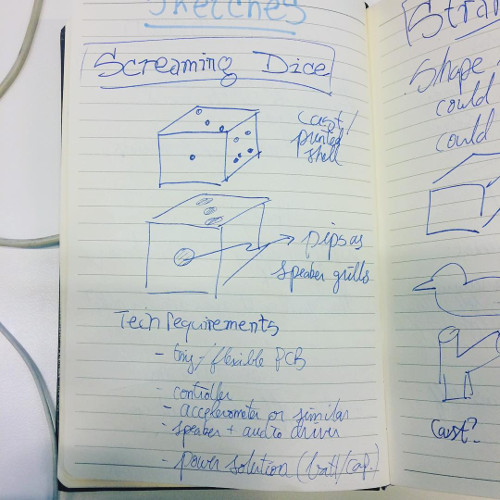 Sketches
Screaming Dice
cast/
printed
shell
pips as
speaker grills
Tech requirements
- tiny/flexible PCB
- controller
- accelerometer or similar
- speaker + audio driver
- power solution (batt/cap.)
Shape
could
could
Cast?